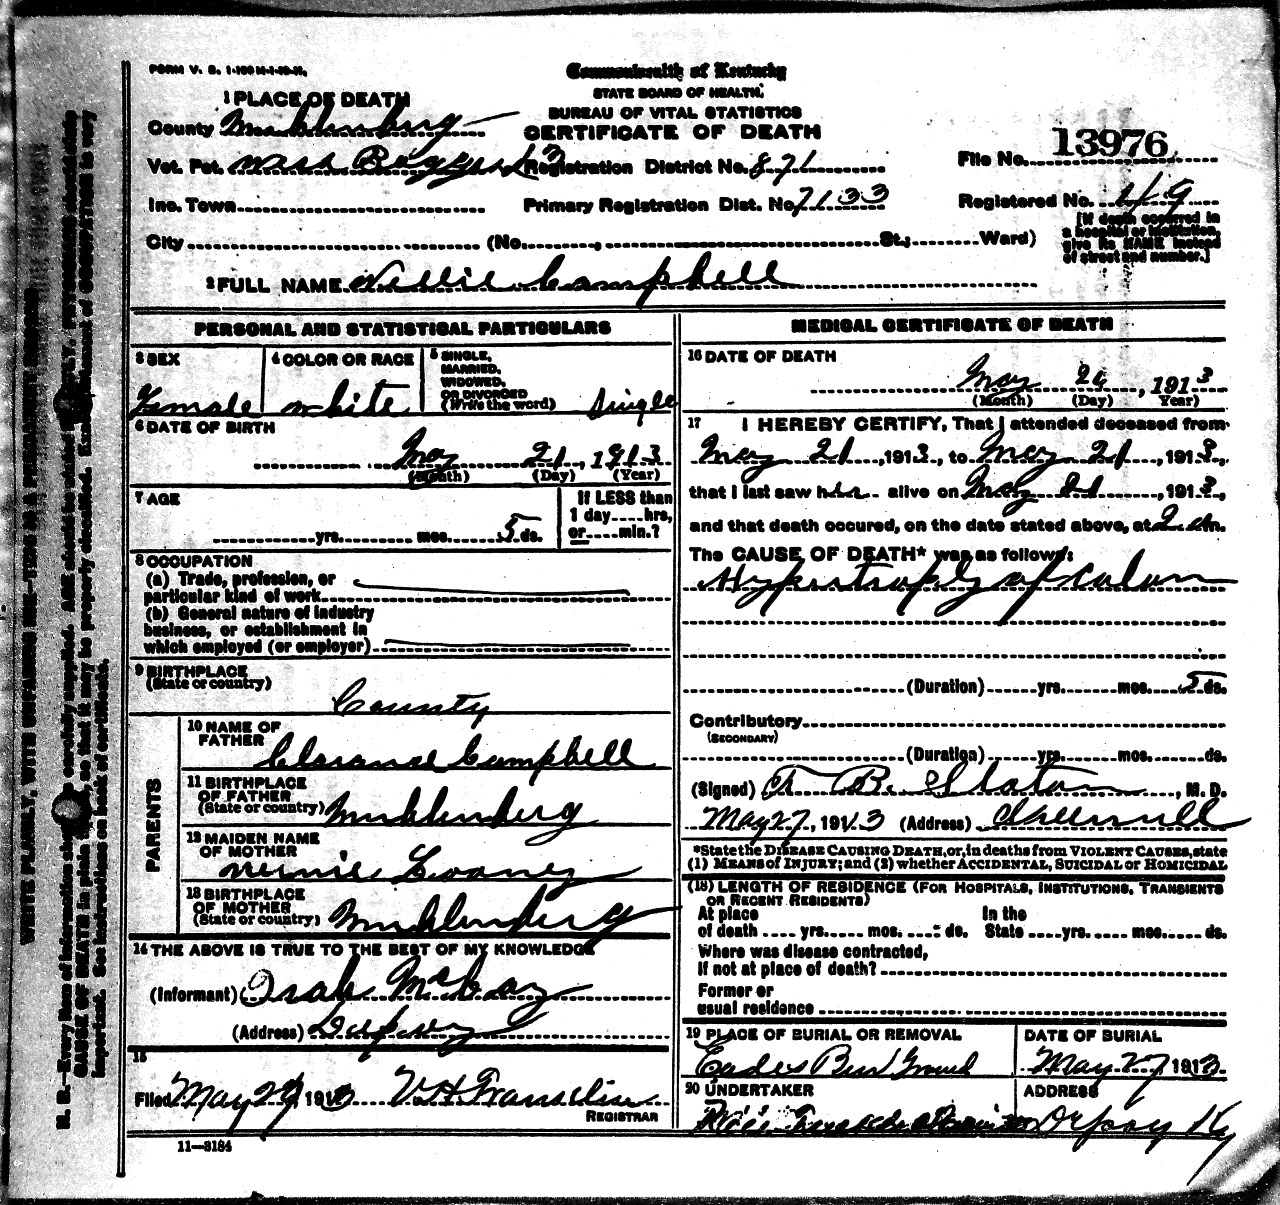 FORM V. S. 1-100 M-1-10-11.
Commonwealth of Kentucky
STATE BOARD OF HEALTH.
BUREAU OF VITAL STATISTICS
CERTIFICATE OF DEATH
1 PLACE OF DEATH
County Muhlenberg
Vot. Pct. West Registration District No. 871
File No. 13976
Inc. Town Primary Registration Dist. No. 7133
Registered No. 49
[If death occurred in
a hospital or institution,
give its NAME instead
of street and number.]
City (No. , St.; Ward)
2 FULL NAME Nellie Campbell
PERSONAL AND STATISTICAL PARTICULARS
3 SEX
Female
4 COLOR OR RACE
white
5 SINGLE,
MARRIED,
WIDOWED,
OR DIVORCED
(Write the word) Single
6 DATE OF BIRTH
May 21, 1913
(Month) (Day) (Year)
7 AGE
yrs. mos. 5 ds.
If LESS than
1 day hrs,
or min.?
8 OCCUPATION
(a) Trade, profession, or
particular kind of work
(b) General nature of industry
business, or establishment in
which employed (or employer)
9 BIRTHPLACE
(State or country)
County
PARENTS
10 NAME OF
FATHER
Clarance Campbell
11 BIRTHPLACE
OF FATHER
(State or country) Muhlenberg
12 MAIDEN NAME
OF MOTHER
13 BIRTHPLACE
OF MOTHER
(State or country) Muhlenberg
14 THE ABOVE IS TRUE TO THE BEST OF MY KNOWLEDGE
(Informant)
(Address) Depoy
15
Filed May 27 1913
REGISTRAR
11—3184
MEDICAL CERTIFICATE OF DEATH
16 DATE OF DEATH
May 26, 1913
(Month) (Day) Year)
17 I HEREBY CERTIFY, That I attended deceased from
May 21, 1913, to May 21, 1913,
that I last saw her alive on May 21, 1913,
and that death occured, on the date stated above, at 2 am.
The CAUSE OF DEATH* was as follows:
Hypertrophy of colon
(Duration) yrs. mos. 5 ds.
Contributory
(SECONDARY)
(Duration) yrs. mos. ds.
(Signed) T. B. Slaton, M. D.
May 27, 1913 (Address)
*State the DISEASE CAUSING DEATH, or, in deaths from VIOLENT CAUSES, state
(1) MEANS of INJURY; and (2) whether ACCIDENTAL, SUICIDAL or HOMICIDAL
(18) LENGTH OF RESIDENCE (FOR HOSPITALS, INSTITUTIONS, TRANSIENTS
OR RECENT RESIDENTS)
At place In the
of death yrs. mos. ds. State yrs. mos. ds.
Where was disease contracted,
If not at place of death?
Former or
usual residence
19 PLACE OF BURIAL OR REMOVAL
Eades Bur Ground
DATE OF BURIAL
May 27 1913
20 UNDERTAKER
ADDRESS
Depoy Ky